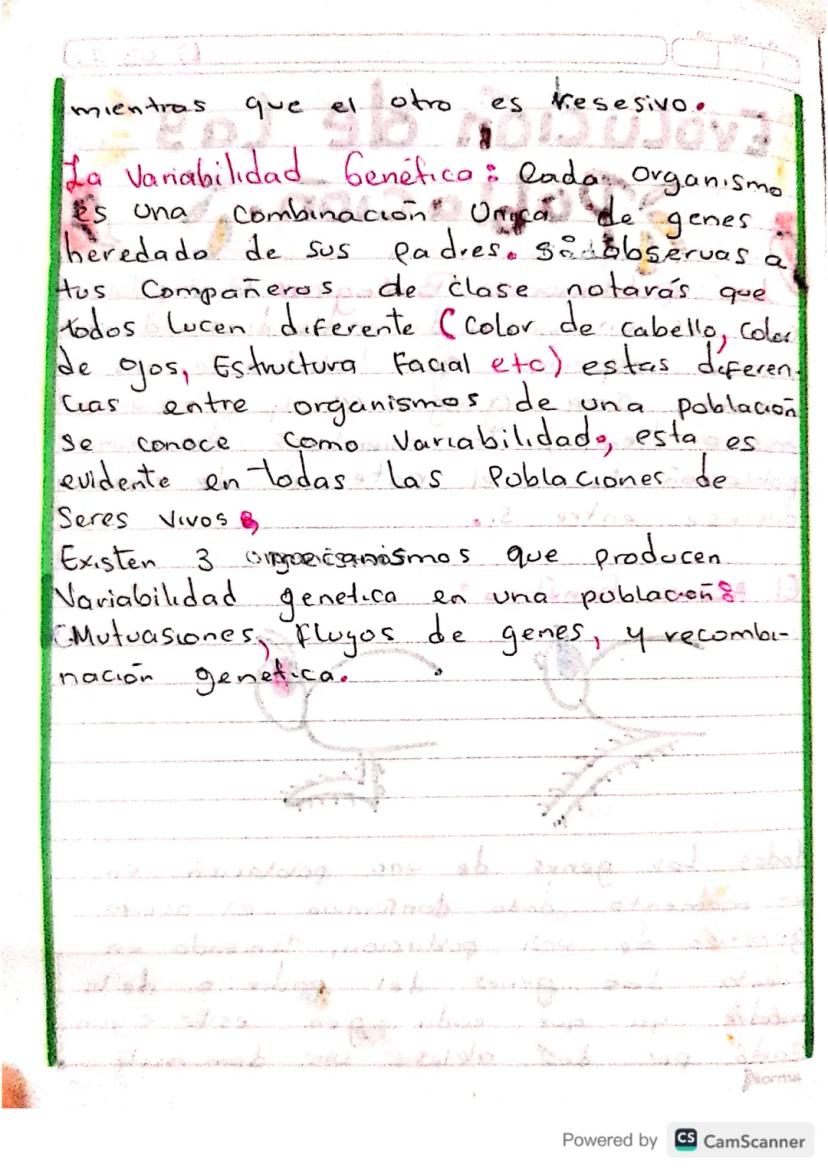 mientras que el otro es resesivo.
La Variabilidad Genética: Cada organismo
es una combinación Unica de genes
heredado de sus padres. Si observas a
tus Compañeros de clase notarás que
todos lucen diferente (color de cabello, color
de ojos, Estructura Facial etc) estas diferen-
cias entre organismos de una población
se conoce como Variabilidad, esta es
evidente en todas las Poblaciones de
Seres vivos,
Existen 3 que producen
Variabilidad genetica en una población:
Mutuasiones, flugos de genes, y recombi-
nación genetica.
Norma
Powered by CS CamScanner